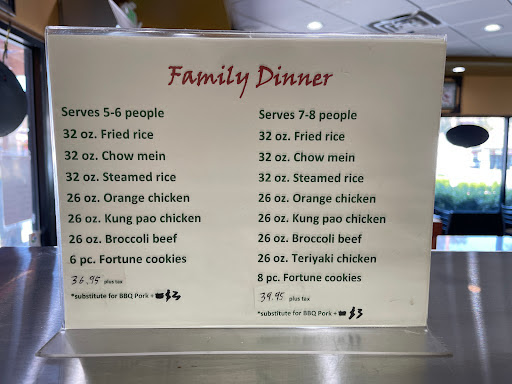 Family Dinner
Serves 5-6 people
32 oz. Fried rice
32 oz. Chow mein
32 oz. Steamed rice
26 oz. Orange chicken
26 oz. Kung pao chicken
26 oz. Broccoli beef
6 pc. Fortune cookies
36.95 plus tax
*substitute for BBQ Pork + $3
Serves 7-8 people
32 oz. Fried rice
32 oz. Chow mein
32 oz. Steamed rice
26 oz. Orange chicken
26 oz. Kung pao chicken
26 oz. Broccoli beef
26 oz. Teriyaki chicken
8 pc. Fortune cookies
39.95 plus tax
*substitute for BBQ Pork + $3